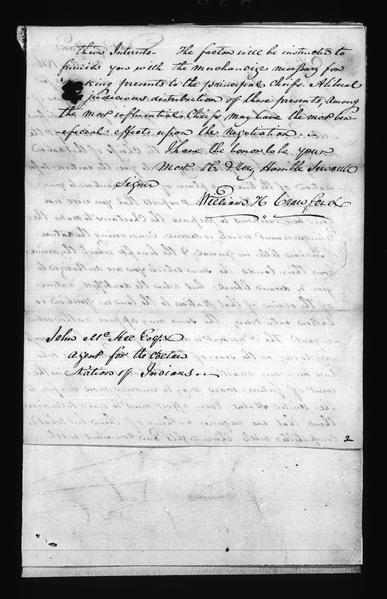 their Interests- The factor will be instructed to
furnish you with the merchandize necessary for
king presents to the principal Chiefs. A liberal
judicious distribution of these presents, among
the most influential Chiefs may have the most ben-
eficial effects upon the Negotiation...
I have the honor to be your
Most Ob & Very Humble Servant
Signed
William H Crawford
John McKee Esqr
Agent for the Coctaw
Nation of Indians..
2